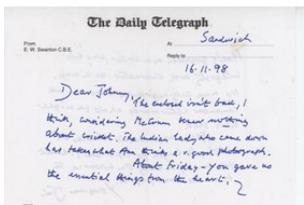 The Daily Telegraph
From
E. W. Swanton C.B.E.
At Sandwich
Reply to
16-11-98
Dear Johnny,
The enclosed isn't bad, I
think, considering McCowan knew nothing
about cricket. The Indian lady who came down
has taken what Ann thinks a v. good photograph.
About Friday - you gave us
the essential things from the heart.